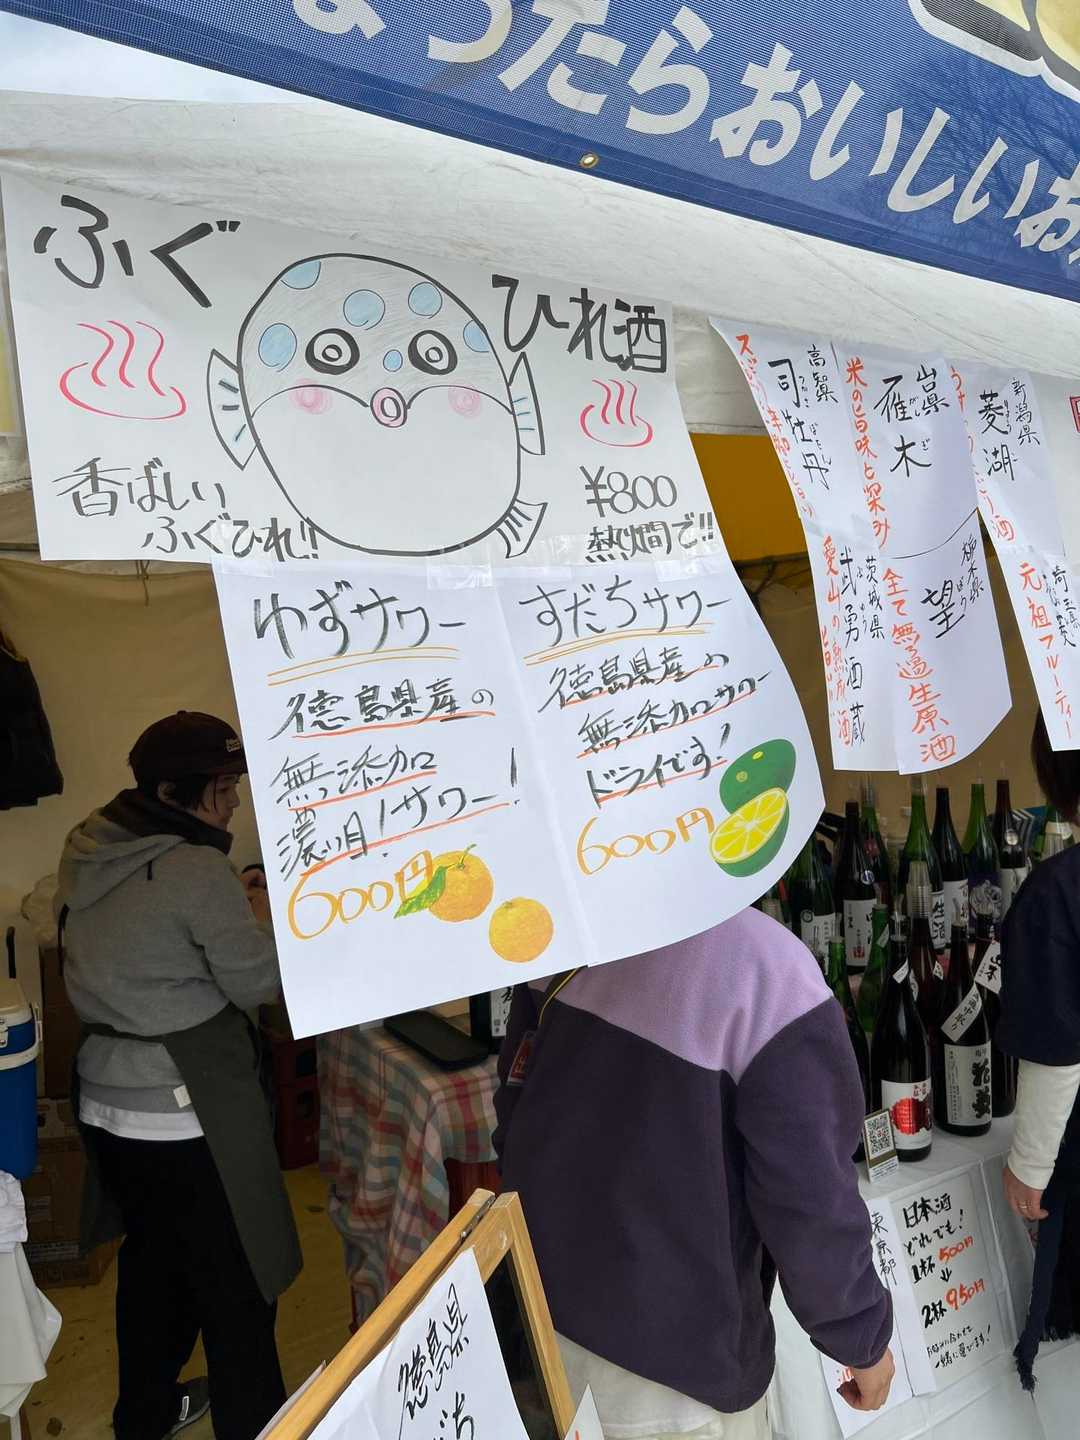 ったらおいしいお
ふぐ
ひれ酒
香ばしい
ふぐひれ!!
¥800
熱燗で!!
ゆずサワー
徳島県産の
無添加
濃いめ!サワー!
600円
すだちサワー
徳島県産の
無添加サワー
ドライです!
600円
高知県
司牡丹
つかさ ぼたん
山口県
雁木
がんぎ
米の旨味と深み
新潟県
菱湖
茨城県
武勇酒蔵
愛山の熟成酒
栃木県
望
ぼう
全て無濾過生原酒
埼玉県
元祖フルーティー
日本酒
どれでも!
1杯 500円
2杯 950円
一緒に選びます!
東京都
徳島県